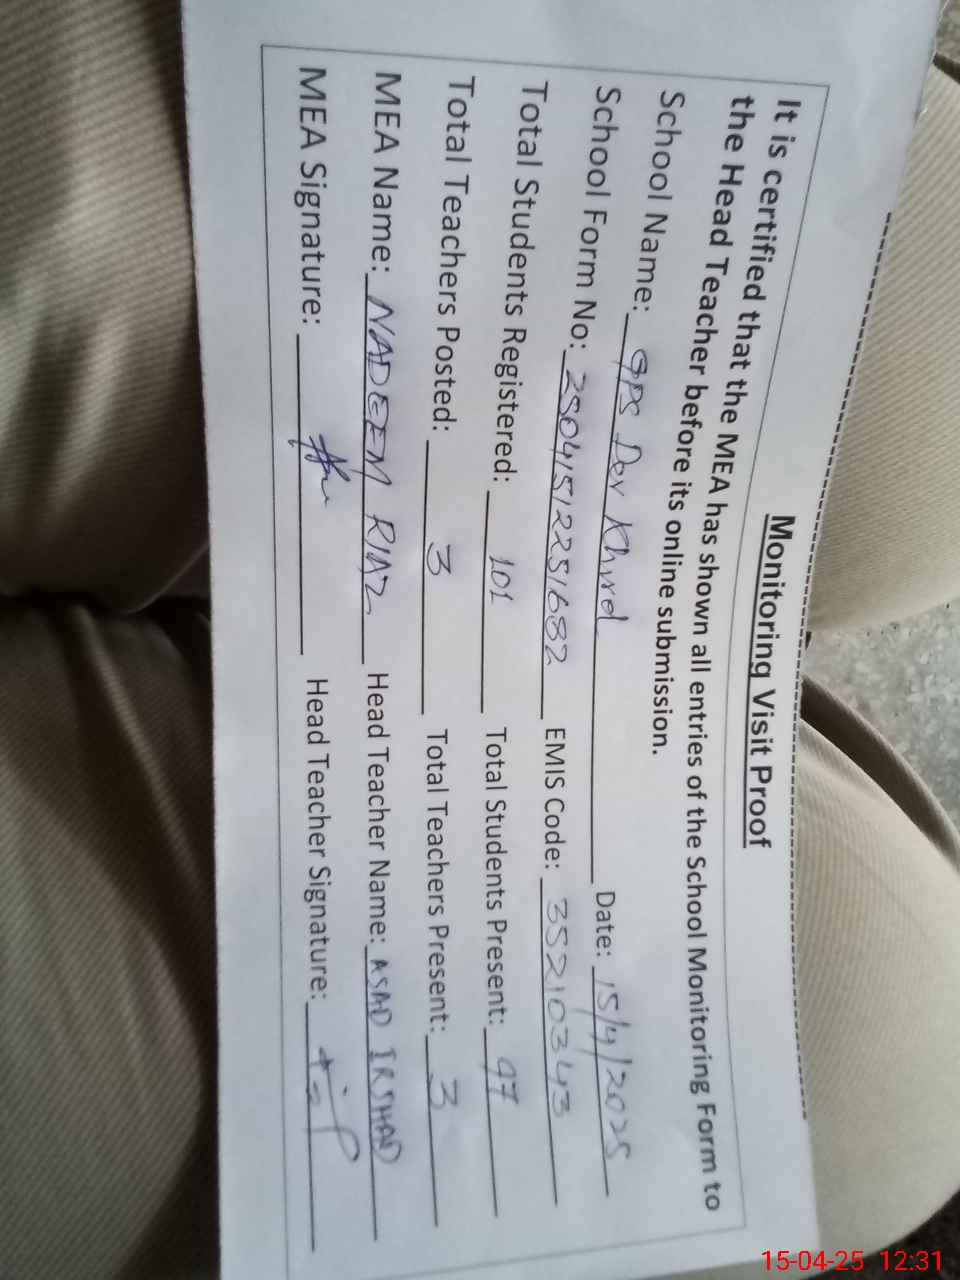 Monitoring Visit Proof
It is certified that the MEA has shown all entries of the School Monitoring Form to
the Head Teacher before its online submission.
School Name: GPS Dev Khurd Date: 15/4/2025
School Form No: 25041512251682 EMIS Code: 35210343
Total Students Registered: 101 Total Students Present: 97
Total Teachers Posted: 3 Total Teachers Present: 3
MEA Name: NADEEM RIAZ Head Teacher Name: ASAD IRSHAD
MEA Signature: Head Teacher Signature:
15-04-25 12:31